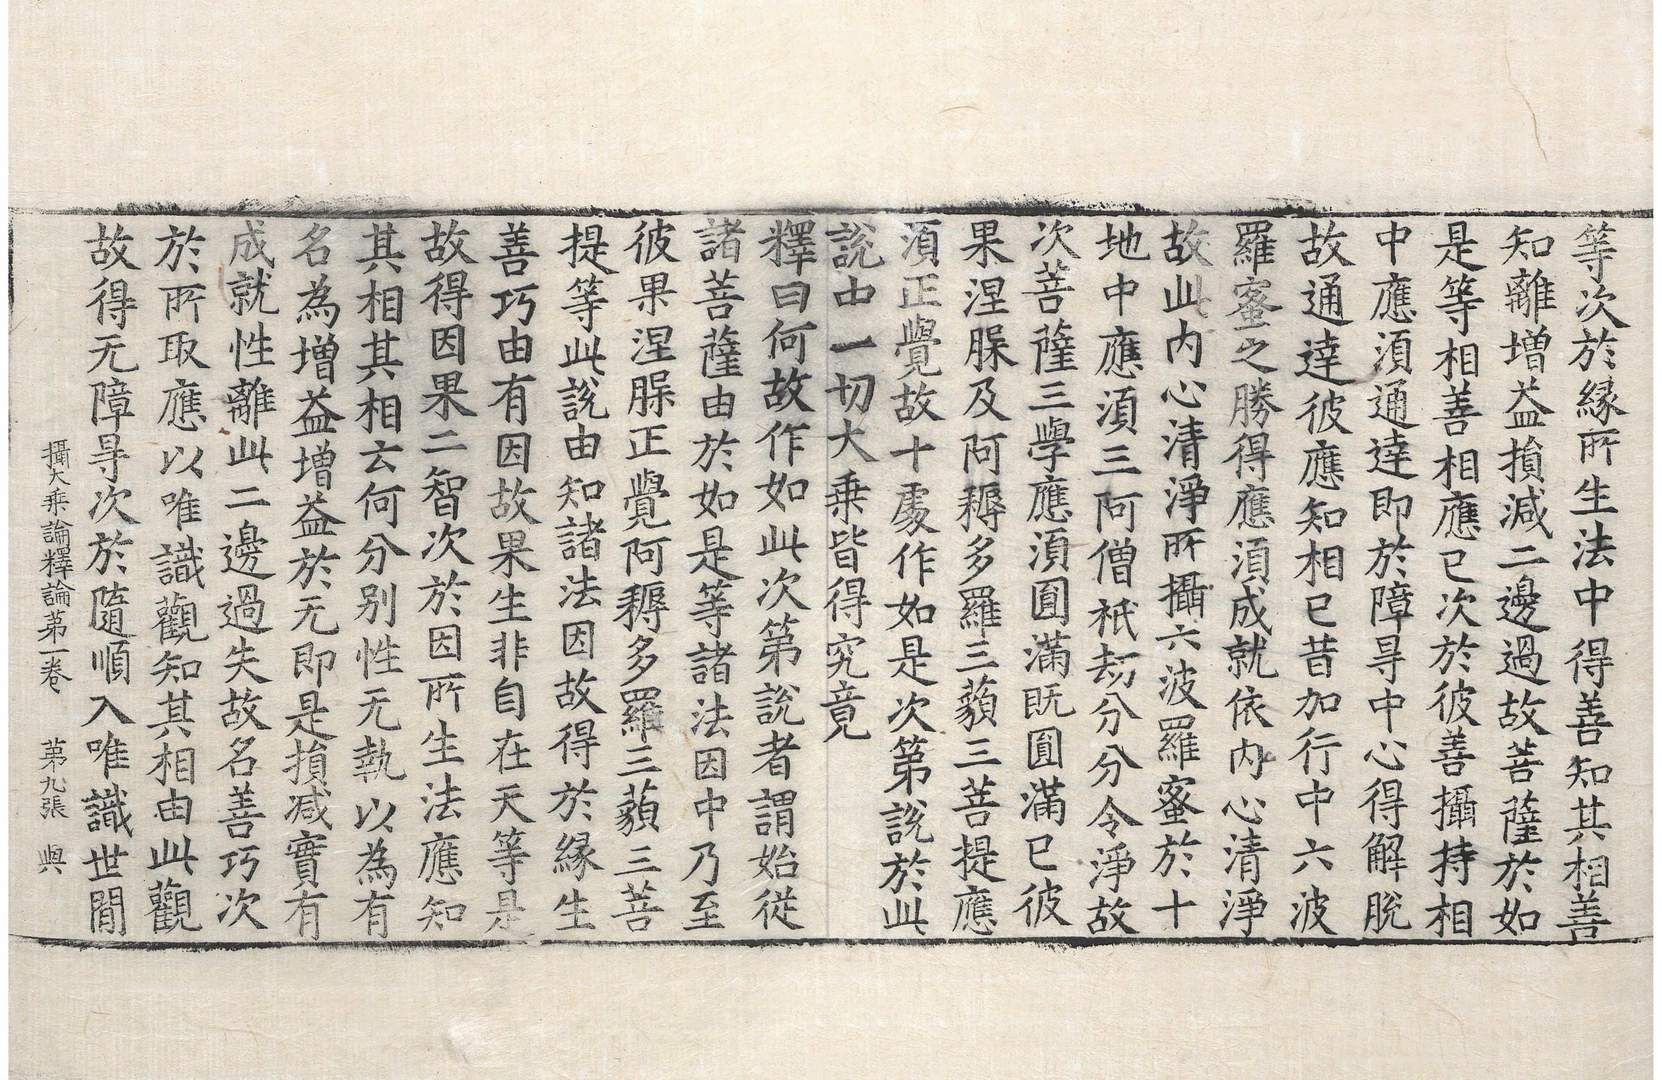 等次於緣所生法中得善知其相善
知離增益損減二邊過故菩薩於如
是等相善相應已次於彼善攝持相
中應須通達即於障㝵中心得解脫
故通達彼應知相已昔加行中六波
羅蜜之勝得應須成就依內心清淨
故此內心清淨所攝六波羅蜜於十
地中應須三阿僧祇劫分分令淨故
次菩薩三學應須圓滿既圓滿已彼
果涅槃及阿耨多羅三藐三菩提應
須正覺故十處作如是次第說於此
說中一切大乘皆得究竟
釋曰何故作如此次第說者謂始從
諸菩薩由於如是等諸法因中乃至
彼果涅槃正覺阿耨多羅三藐三菩
提等此說由知諸法因故得於緣生
善巧由有因故果生非自在天等是
故得因果二智次於因所生法應知
其相其相云何分別性无執以為有
名為增益增益於无即是損減實有
成就性離此二邊過失故名善巧次
於所取應以唯識觀知其相由此觀
故得无障㝵次於隨順入唯識世間
攝大乘論釋論第一卷 第九張 與